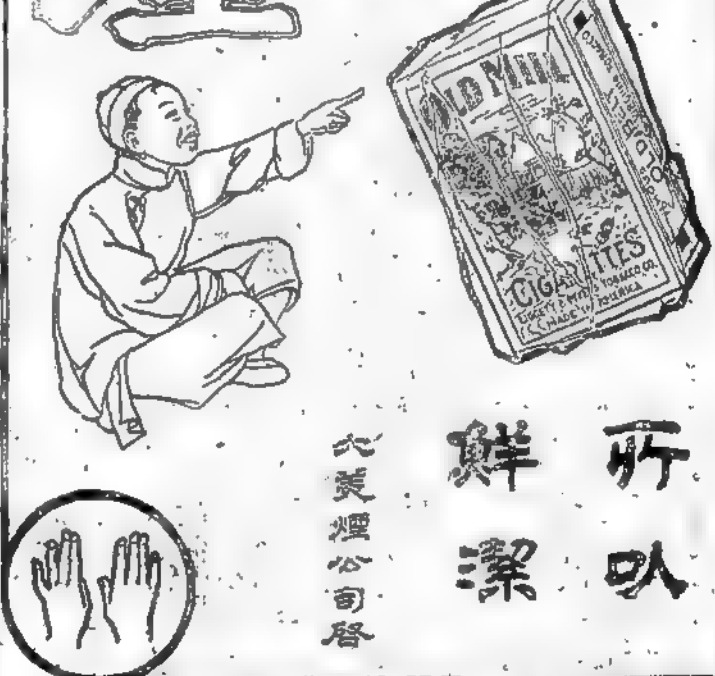 OLD MILL
CIGARETTES
LIGGETT & MYERS TOBACCO CO.
MADE IN AMERICA
所以
鮮潔
大美煙公司啓